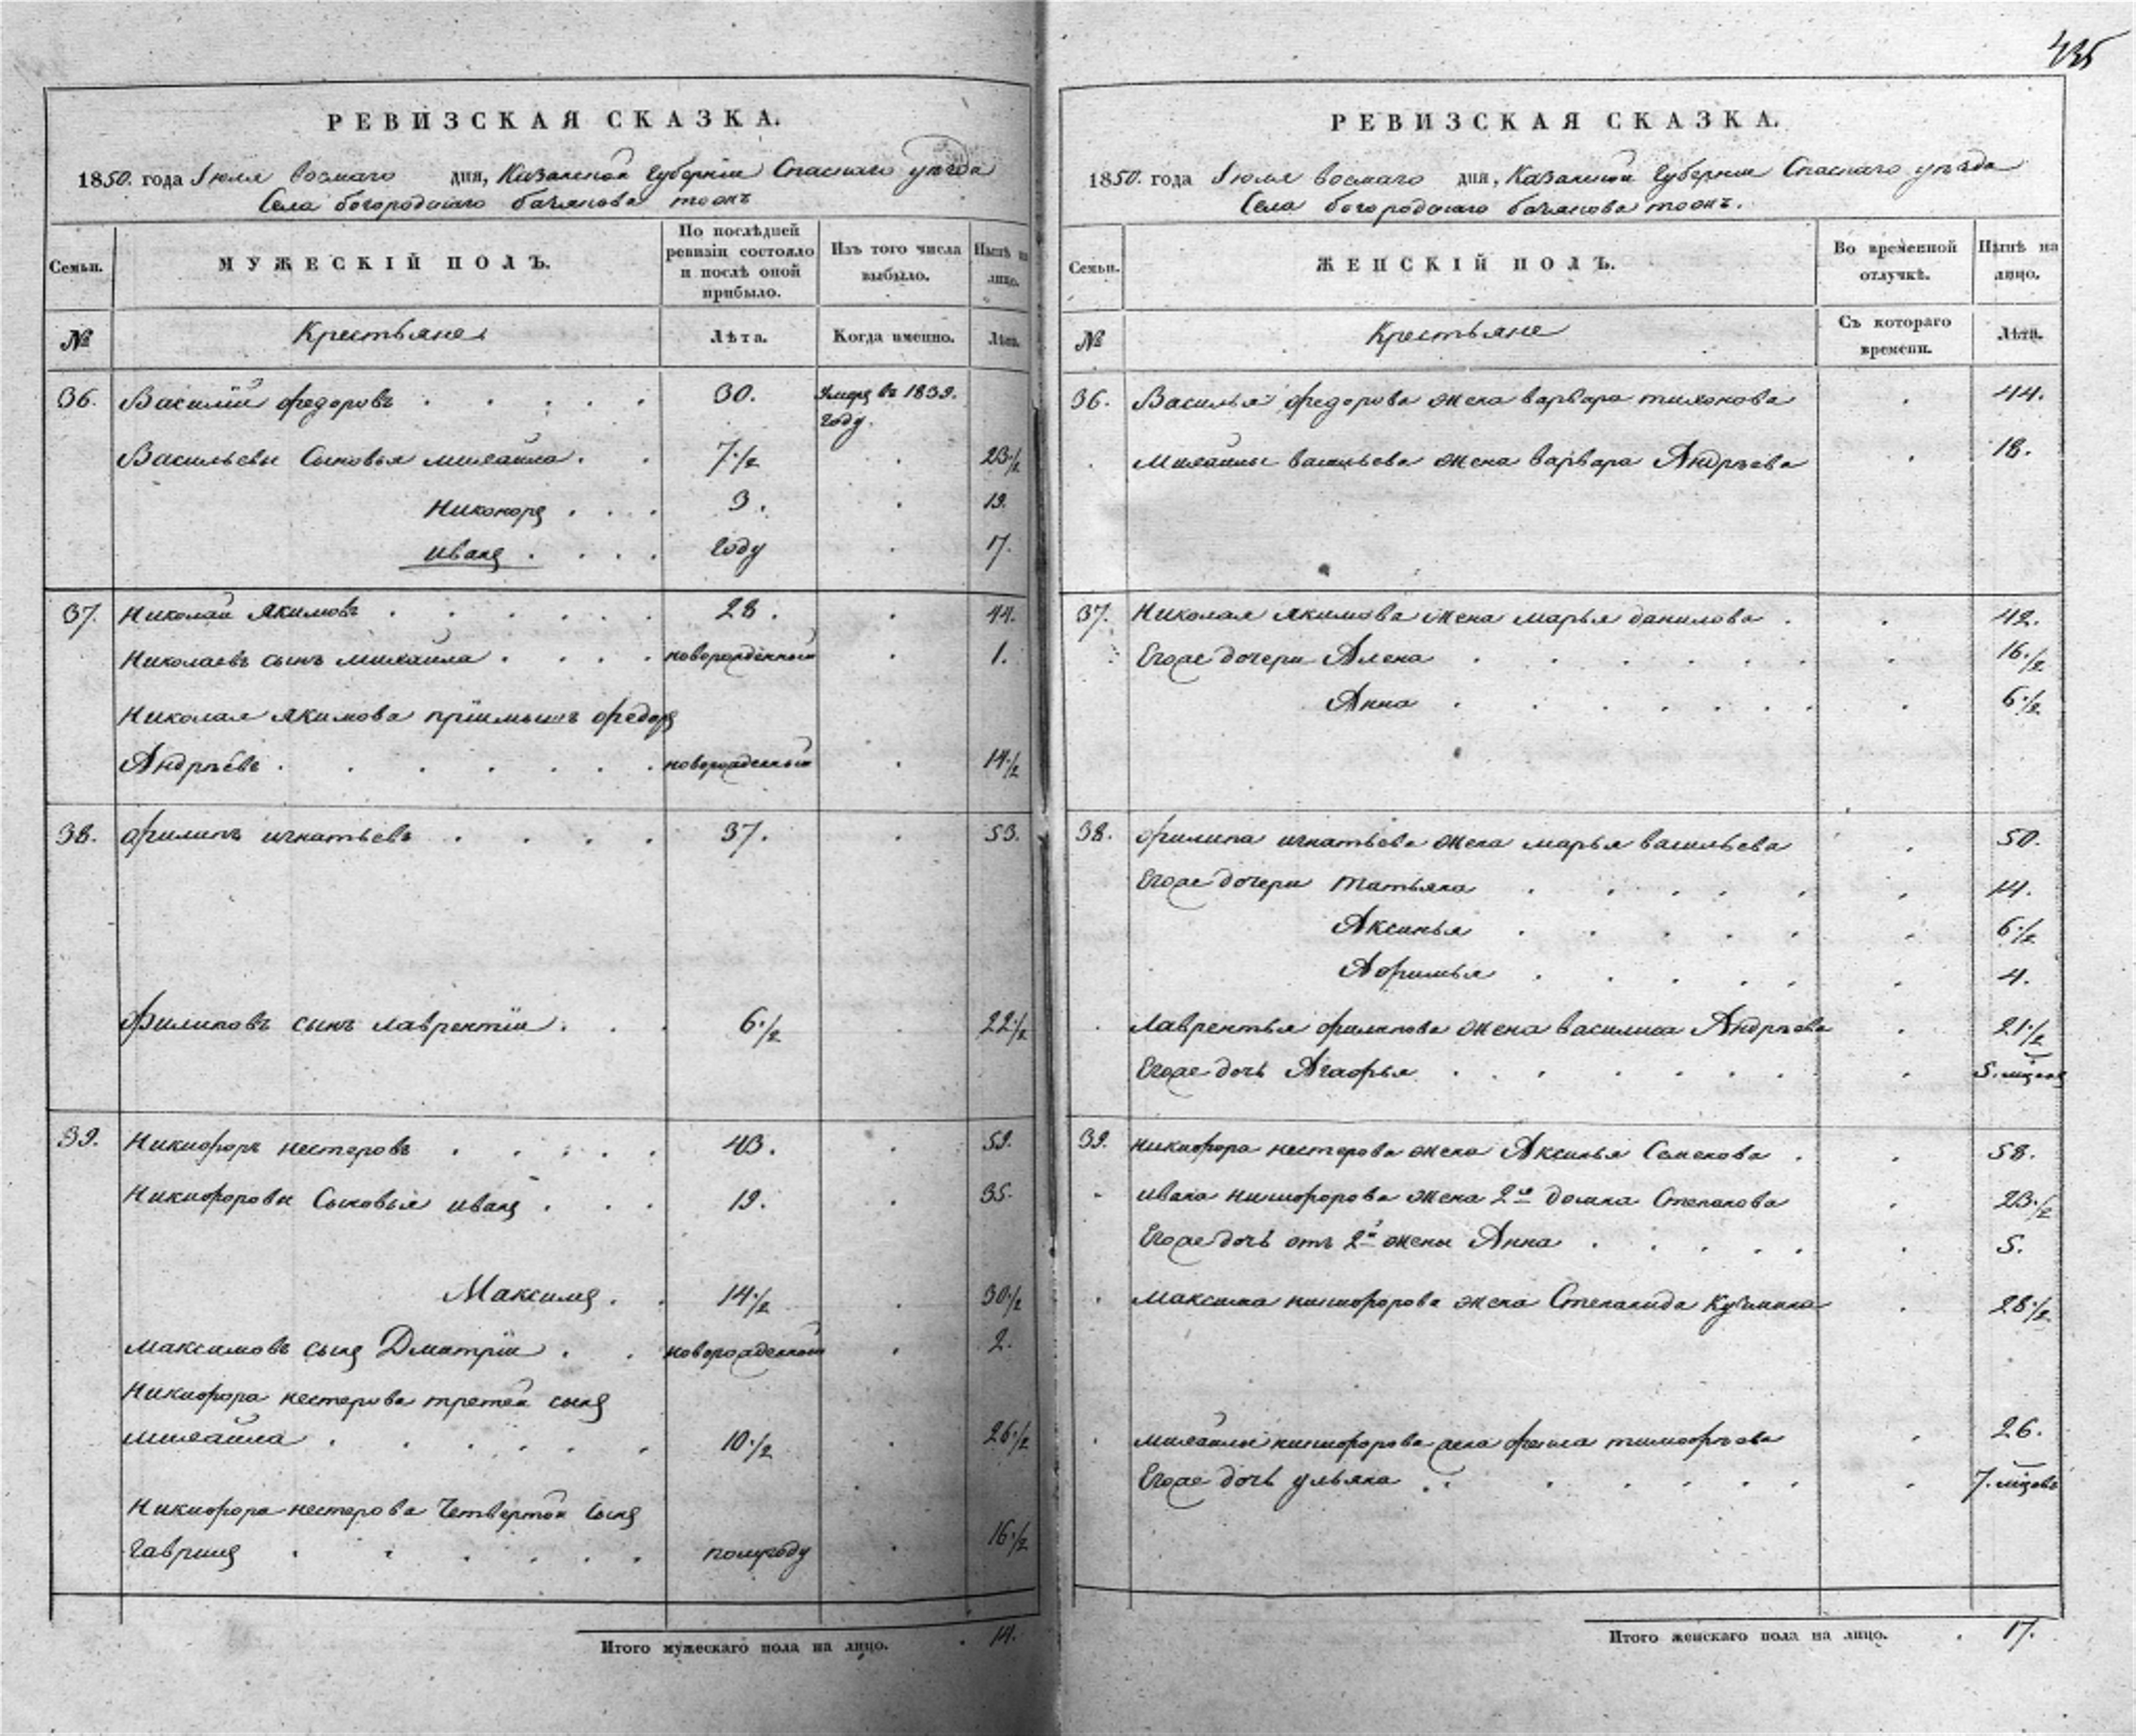 435
РЕВИЗСКАЯ СКАЗКА.
1850. года Іюля восмаго дня, Казанской Губерніи Спаскаго уѣзда
Села богородскаго тожъ
Семьи.
МУЖЕСКІЙ ПОЛЪ.
По послѣдней ревизіи состояло и послѣ оной прибыло.
Изъ того числа выбыло.
Нынѣ на лицо.
№
Крестьяне
Лѣта.
Когда именно.
Лѣта.
36. Василій Федоровъ 30. Умеръ въ 1839. году.
Васильевы Сыновья михаила 7.½ 23.½
Никоноръ 3. 19.
иванъ году 17.
37. Николай Якимовъ 28. 44.
Николаевъ сынъ михаила новорожденный 1.
Николая якимова пріимышъ федоръ
Андрѣевъ новорожденный 14.½
38. филипъ игнатьевъ 37. 53.
филиповъ сынъ лаврентій 6.½ 22.½
39. Никифоръ нестеровъ 43. 59.
Никифоровы Сыновья иванъ 19. 35.
Максимъ 14.½ 30.½
максимовъ сынъ Дмитрій новорожденный 2.
Никифора нестерова третей сынъ
михаила 10.½ 26.½
Никифора нестерова Четвертой сынъ
гаврила полугоду 16.½
Итого мужескаго пола на лицо. 14.
РЕВИЗСКАЯ СКАЗКА.
1850. года Іюля восмаго дня, Казанской Губерніи Спаскаго уѣзда
Села богородскаго тожъ.
Семьи.
ЖЕНСКІЙ ПОЛЪ.
Во временной отлучкѣ.
Нынѣ на лицо.
№
Крестьяне
Съ котораго времени.
Лѣта.
36. Василья федорова жена варвара тихонова 44.
Михайлы васильева жена варвара Андрѣева 18.
37. Николая якимова жена марья данилова 42.
Егоже дочери Алена 16.½
Анна 6.½
38. филипа игнатьева жена марья васильева 50.
Егоже дочери татьяна 14.
Аксинья 6.½
Афимья 4.
лаврентья филипова жена василиса Андрѣева 21.½
Егоже дочь Агафья 5. мцовъ
39. никифора нестерова жена Аксинья Семенова 58.
ивана никифорова жена 2я домна Степанова 23.½
Егоже дочь отъ 2й жены Анна 5.
максима никифорова жена Степанида Кузмина 28.½
михайлы никифорова жена тимофѣева 26.
Егоже дочь ульяна 7. мцовъ
Итого женскаго пола на лицо. 17.